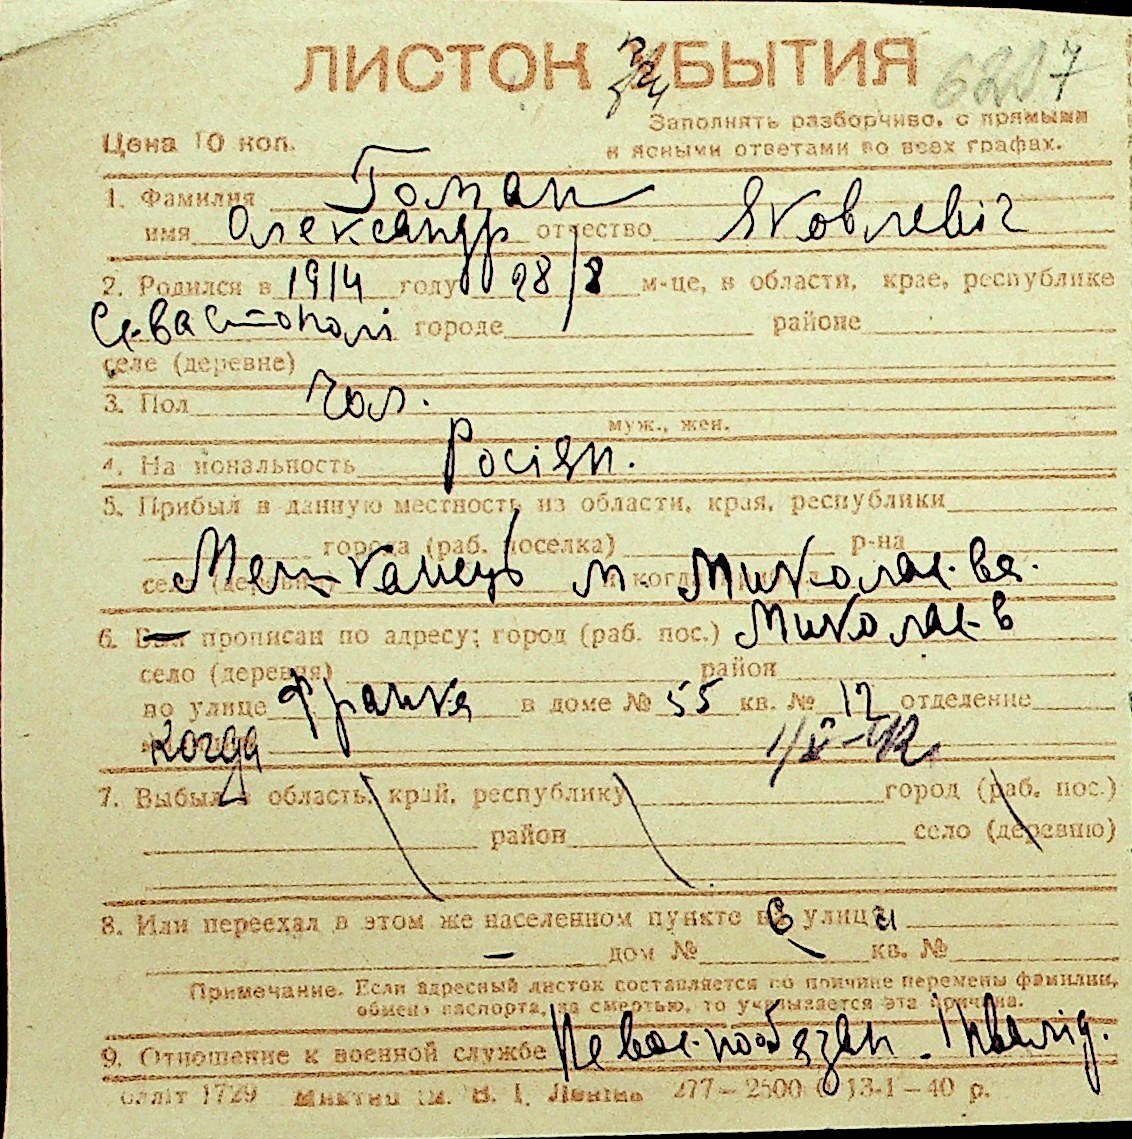 ЛИСТОК УБЫТИЯ
6287
Цена 10 коп.
Заполнять разборчиво, с прямыми
и ясными ответами во всех графах.
1. Фамилия Гоман
имя Олександр отчество Яковлевіч
2. Родился в 1914 году 28/8 м-це, в области, крае, республике
Севастополі городе районе
селе (деревне)
3. Пол Чол.
муж., жен.
4. Национальность Росіян.
5. Прибыл в данную местность из области, края, республики
города (раб. поселка) р-на
села (деревни) Мешканець м. Миколаєва.
6. Был прописан по адресу: город (раб. пос.) Миколаєв
село (деревня) район
по улице Франка в доме № 55 кв. № 12 отделение
когда 1/V-42
7. Выбыл в область, край, республику город (раб. пос.)
район село (деревню)
8. Или переехал в этом же населенном пункте с улици
— дом № кв. №
Примечание. Если адресный листок составляется по причине перемены фамилии,
обмена паспорта, за смертью, то указывается эта причина.
9. Отношение к военной службе Невоеннообязан. Інвалід.
Обліт 1729 ім. В. І. Леніна 277–2500 13-1–40 р.